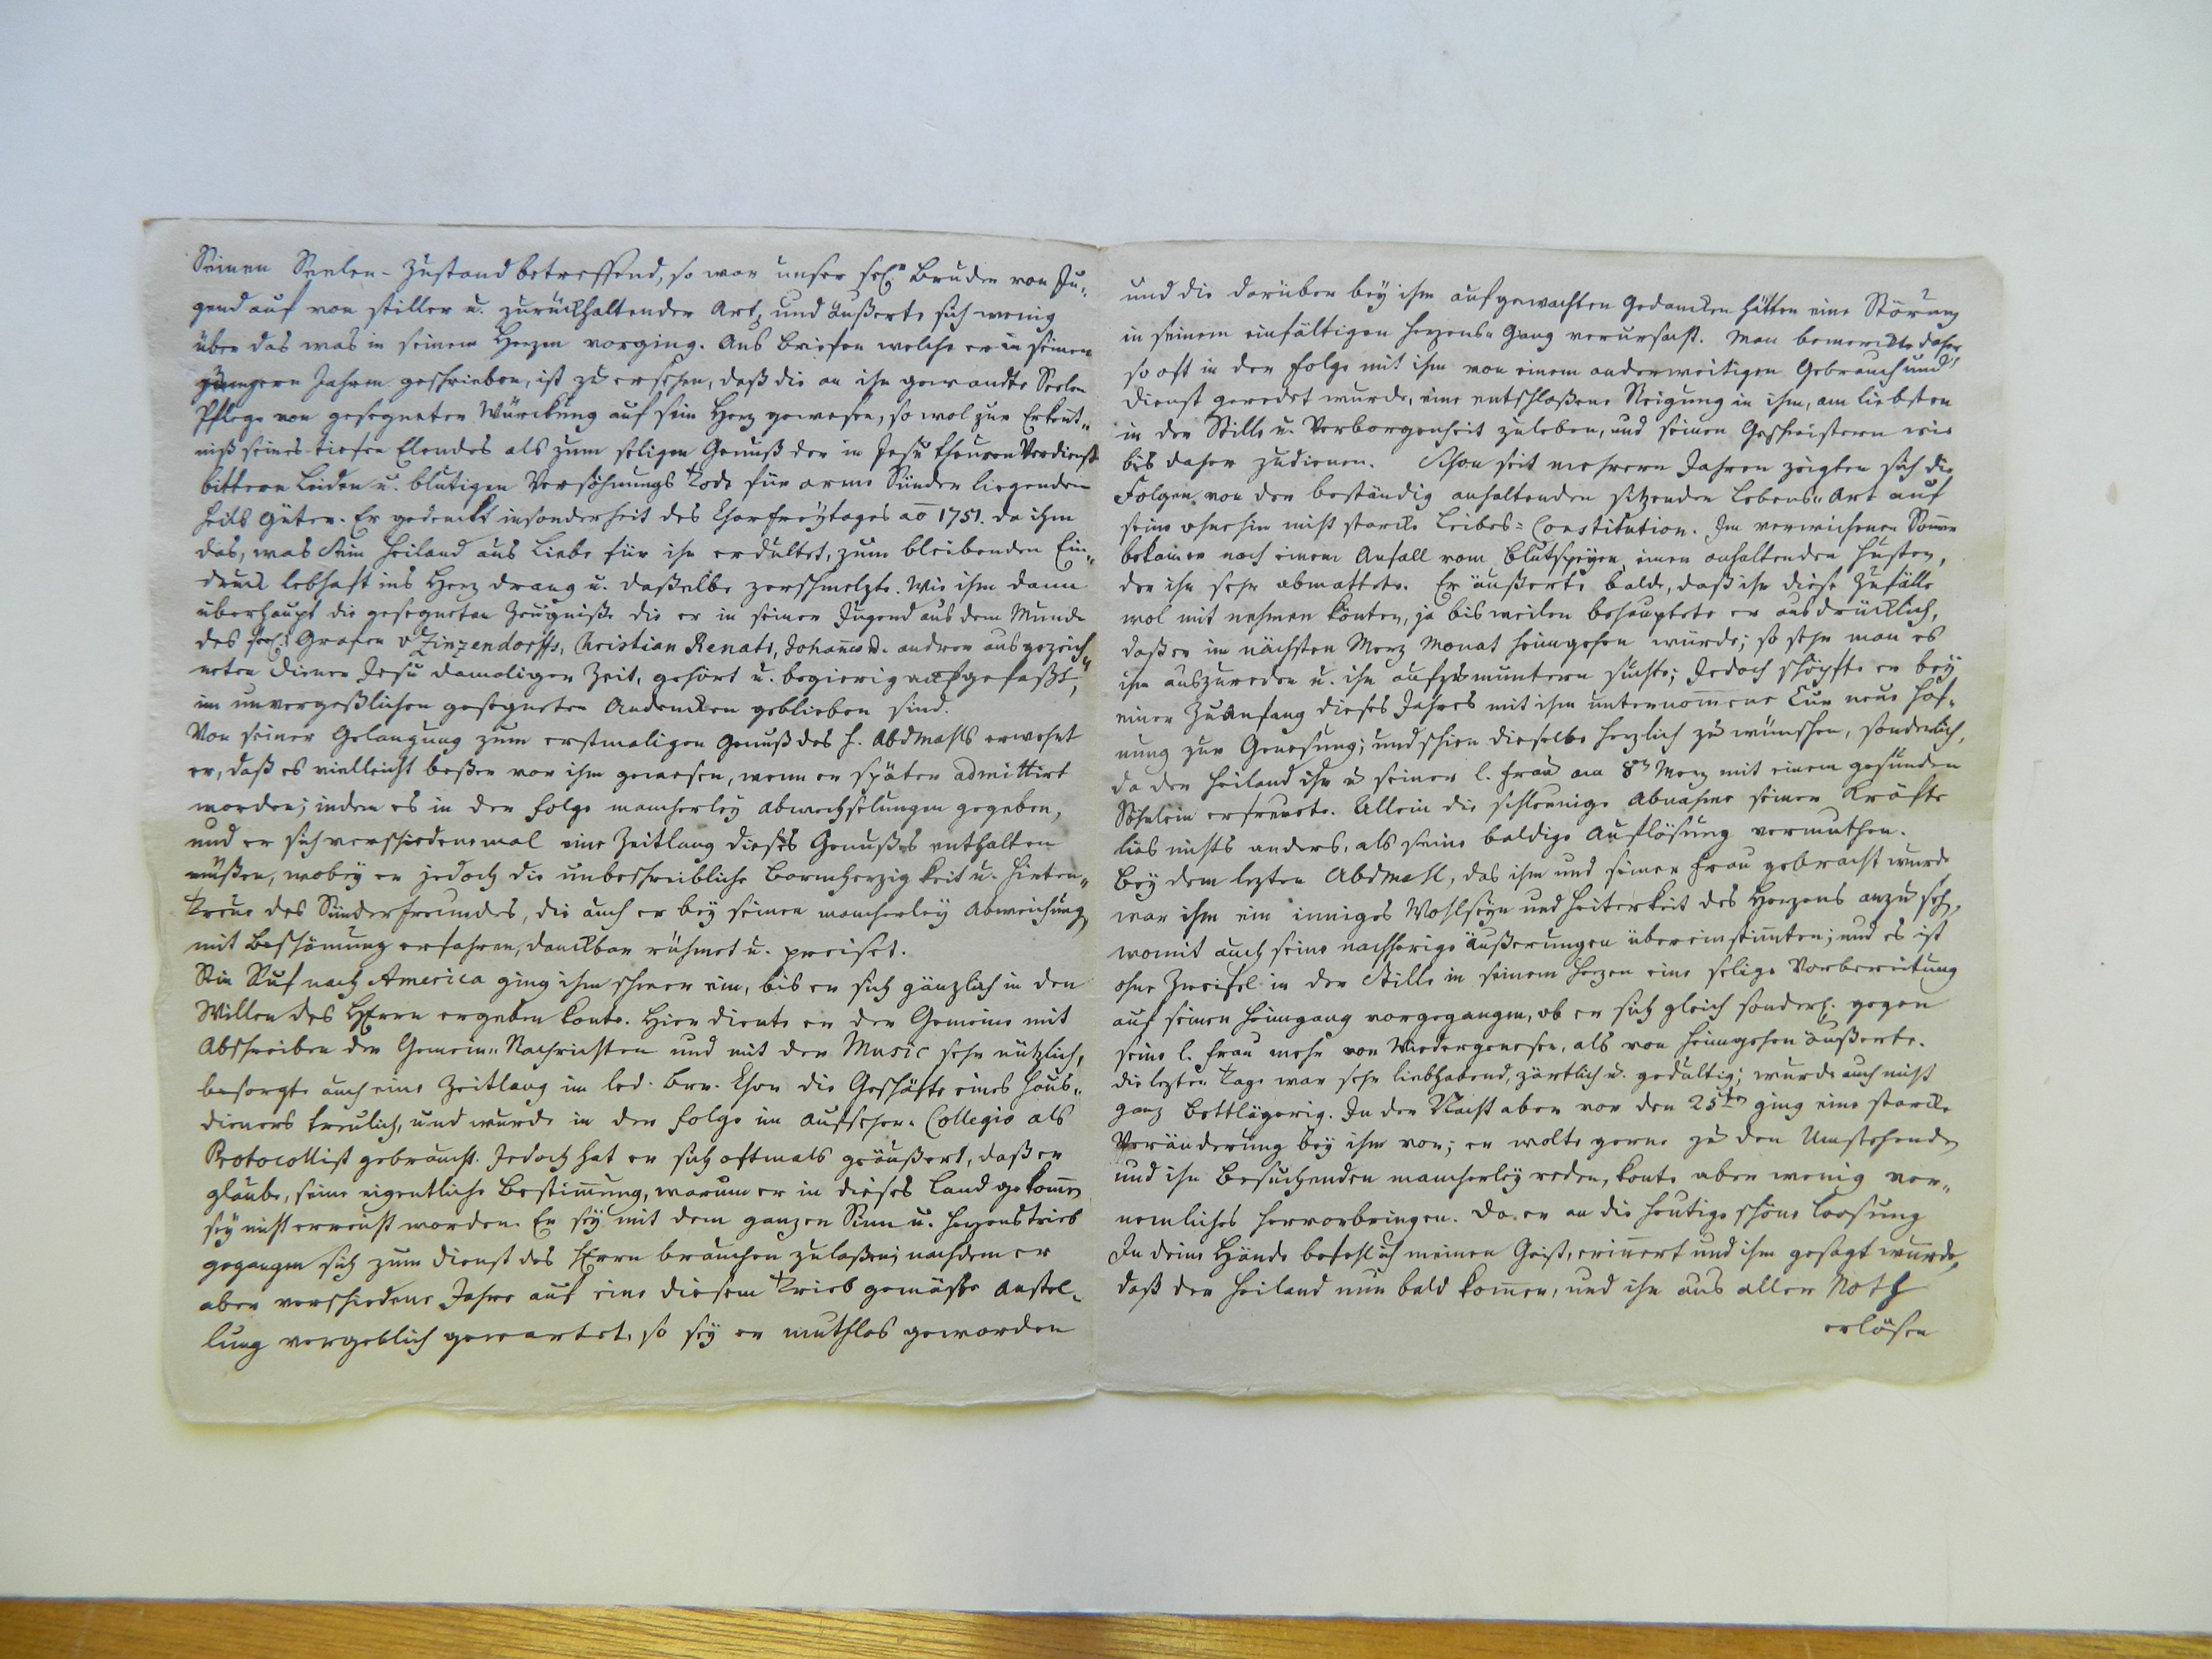 Seinen Seelen-Zustand betreffend, so war unser sel. Bruder von Ju-
gend auf von stiller u. zurückhaltender Art, und äußerte sich wenig
über das was in seinem Herzen vorging. Aus Briefen welche er in seinen
jüngern Jahren geschrieben, ist zu ersehen, daß die an ihn gewandte Seelen
Pflege von gesegneter Würckung auf sein Herz gewesen, so wol zur Erkent-
niß seines tiefen Elendes als zum seligen Genuß der in Jesu theuren Verdienst
bittern Leiden u. blutigen Versöhnungs Tode für arme Sünder liegenden
Heils Güter. Er gedenckt insonderheit des Charfreytages ao 1751. da ihm
das, was Sein Heiland aus Liebe für ihn erdultet, zum bleibenden Ein-
druck lebhaft ins Herz drang u. daßelbe zerschmelzte. Wie ihm dann
überhaupt die gesegneten Zeugniße die er in seiner Jugend aus dem Munde
des sel. Grafen v Zinzendorffs, Christian Renati, Johannis u. andrer ausgezeich-
neten Diener Jesu damaliger Zeit, gehört u. begierig aufgefaßt,
im unvergeßlichen gesegneten Andencken geblieben sind.
Von seiner Gelangung zum erstmaligen Genuß des h. Abdmahls erwehnt
er, daß es vielleicht beßer vor ihm gewesen, wenn er später admittirt
worden; indem es in der Folge mancherley Abwechselungen gegeben,
und er sich verschiedenemal eine Zeitlang dieses Genußes enthalten
müßen, wobey er jedoch die unbeschreibliche Barmherzigkeit u. Hirten-
Treue des Sünderfreundes, die auch er bey seinen mancherley Abweichung
mit Beschämung erfahren, danckbar rühmet u. preiset.
Sein Ruf nach America ging ihm schwer ein, bis er sich gänzlich in den
Willen des HErrn ergeben konte. Hier diente er der Gemeine mit
Abschreiben der Gemein-Nachrichten und mit der Music sehr nützlich,
besorgte auch eine Zeitlang im led. Brr. Chor die Geschäfte eines Haus-
dieners treulich, und wurde in der Folge im Aufseher-Collegio als
Protocollist gebraucht. Jedoch hat er sich oftmals geäußert, daß er
glaube, seine eigentliche Bestimmung, warum er in dieses Land gekomen
sey nicht erreicht worden. Er sey mit dem ganzen Sinn u. Herzenstrieb
gegangen sich zum Dienst des HErrn brauchen zulaßen; nachdem er
aber verschiedene Jahre auf eine diesem Trieb gemäße Anstel-
lung vergeblich gewartet, so sey er muthlos geworden
und die darüber bey ihm aufgewachten Gedancken hätten eine Störung
in seinem einfältigen Herzens-Gang verursacht. Man bemerckte daher
so oft in der Folge mit ihm von einem anderweitigen Gebrauch und
Dienst geredet wurde, eine entschloßene Neigung in ihm, am liebsten
in der Stille u. Verborgenheit zuleben, und seinen Geschwistern wie
bis daher zudienen. Schon seit mehrern Jahren zeigten sich die
Folgen von der beständig anhaltenden sitzenden Lebens-Art auf
seine ohnehin nicht starcke Leibes-Constitution. Im verwichenen Somer
bekam er nach einem Anfall vom Blutspeyen einen anhaltenden Husten,
der ihn sehr abmattete. Er äußerte balde, daß ihn diese Zufälle
wol mit nehmen könten, ja bisweilen behauptete er ausdrücklich,
daß er im nächsten Merz Monat heimgehen würde; so sehr man es
ihm auszureden u. ihn aufzumuntern suchte; Jedoch schöpfte er bey
einer Zuanfang dieses Jahres mit ihm unternommene Cur neue Hof-
nung zur Genesung; und schien dieselbe herzlich zu wünschen, sonderlich,
da der Heiland ihn u seiner l. Frau am 8ten Merz mit einem gesunden
Söhnlein erfreuete. Allein die schleunige Abnahme seiner Kräfte
lies nichts anders, als seine baldige Auflösung vermuthen.
Bey dem lezten Abdmahl, das ihm und seiner Frau gebracht wurde
war ihm ein inniges Wohlseyn und Heiterkeit des Herzens anzu sehn,
womit auch seine nachherige Äußerungen übereinstimten; und es ist
ohne Zweifel in der Stille in seinem Herzen eine selige Vorbereitung
auf seinen Heimgang vorgegangen, ob er sich gleich sonderl. gegen
seine l. Frau mehr von Wiedergenesen, als von Heimgehen äußerte.
die lezten Tage war sehr liebhabend, zärtlich u. gedultig; wurde auch nicht
ganz Bettlägerig. In der Nacht aber vor den 25ten ging eine starcke
Veränderung bey ihm vor; er wolte gerne zu den Umstehenden
und ihn Besuchenden mancherley reden, konte aber wenig ver-
nemliches hervorbringen. Da er an die heutige schöne Loosung
In deine Hände befehl ich meinen Geist, erinnert und ihm gesagt wurde,
daß der Heiland nun bald komen, und ihn aus aller Noth
erlösen